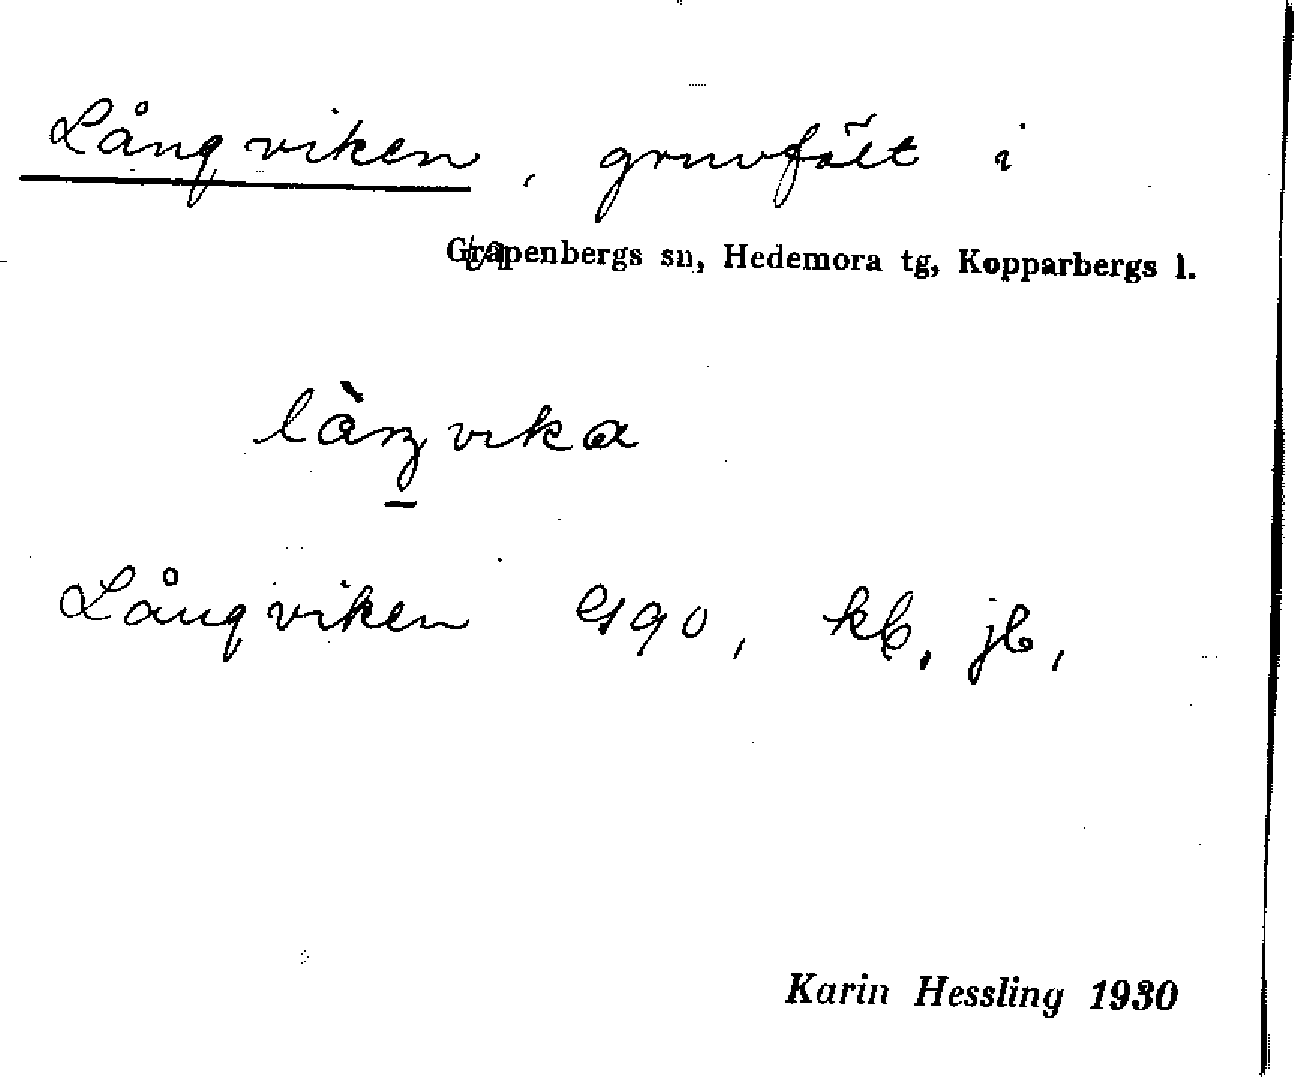 Långviken, gruvfält i
Grapenbergs sn, Hedemora tg, Kopparbergs l.
làŋvika
Långviken G90, kb, jb,
Karin Hessling 1930